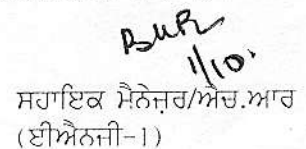 1/10.
ਸਹਾਇਕ ਮੈਨੇਜ਼ਰ/ਐਚ.ਆਰ
(ਈਐਨਜੀ-1)